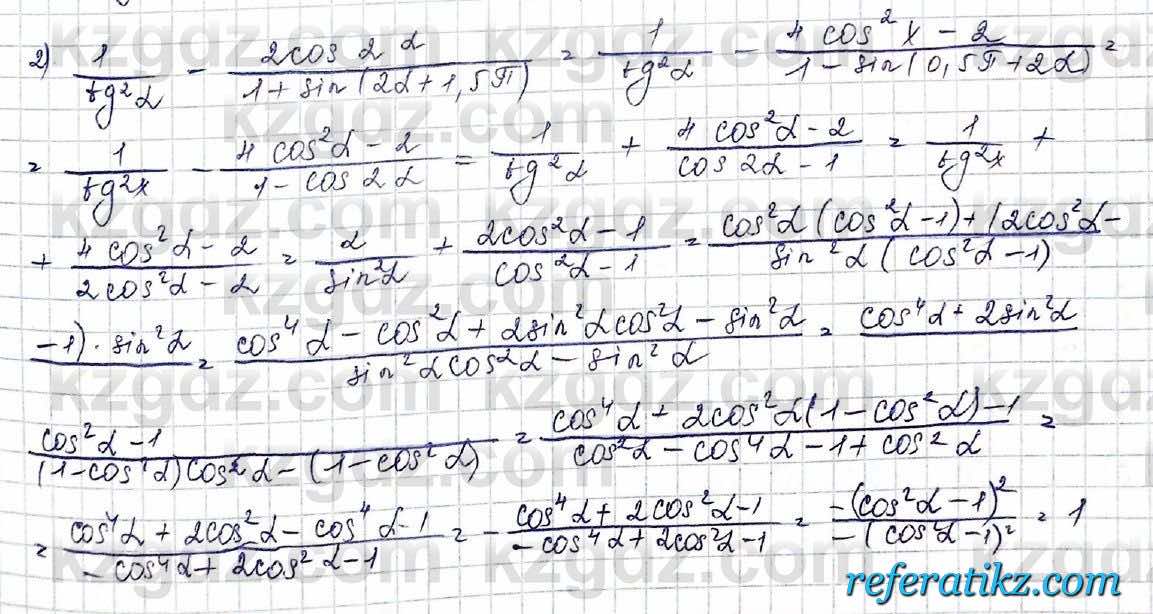 2) 1/tg²α − 2cos 2α/(1 + sin(2α + 1,5π)) = 1/tg²α − (4 cos²x − 2)/(1 − sin(0,5π + 2α)) =
= 1/tg²x − (4 cos²α − 2)/(1 − cos 2α) = 1/tg²α + (4 cos²α − 2)/(cos 2α − 1) = 1/tg²x +
+ (4 cos²α − 2)/(2cos²α − 2) = α/sin²α + (2cos²α − 1)/(cos²α − 1) = cos²α(cos²α − 1) + (2cos²α − / sin²α(cos²α − 1)
−1) · sin²α = (cos⁴α − cos²α + 2sin²αcos²α − sin²α)/(sin²αcos²α − sin²α) = cos⁴α + 2sin²α
cos²α − 1/((1 − cos²α)cos²α − (1 − cos²α)) = (cos⁴α + 2cos²α(1 − cos²α) − 1)/(cos²α − cos⁴α − 1 + cos²α) =
= (cos⁴α + 2cos²α − cos⁴α − 1)/(−cos⁴α + 2cos²α − 1) = −(cos⁴α + 2cos²α − 1)/(−cos⁴α + 2cos²α − 1) = −(cos²α − 1)²/−(cos²α − 1)² = 1
kzgdz.com
referatikz.com